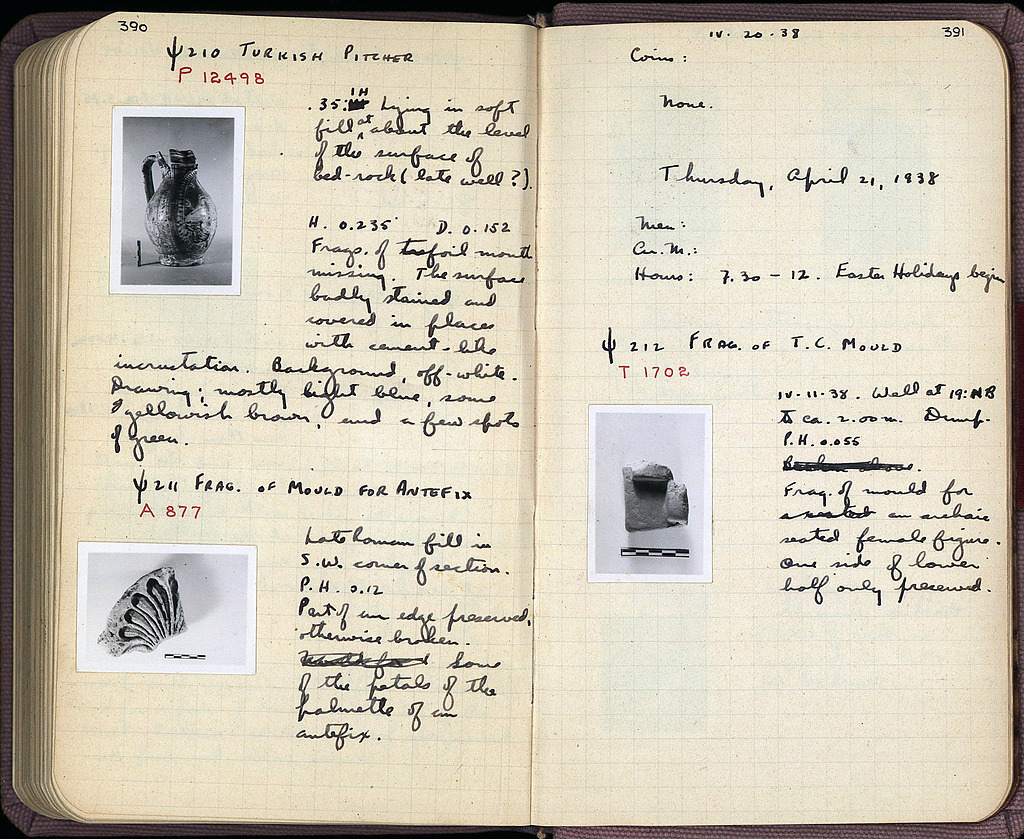 390
ψ 210 TURKISH PITCHER
P 12498
.35: IH Lying in soft
fill at about the level
of the surface of
bed-rock (late well?).
H. 0.235 D. 0.152
Frags. of trefoil mouth
missing. The surface
badly stained and
covered in places
with cement-like
incrustation. Background, off-white.
Drawing; mostly light blue, some
yellowish brown, and a few spots
of green.
ψ 211 FRAG. OF MOULD FOR ANTEFIX
A 877
Late Roman fill in
S.W. corner of section.
P.H. 0.12
Part of an edge preserved,
otherwise broken.
Some
of the petals of the
palmette of an
antefix.
IV. 20. 38 391
Coins:
None.
Thursday, April 21, 1938
Men:
Car. M.:
Hours: 7.30 – 12. Easter Holidays begin
ψ 212 FRAG. OF T.C. MOULD
T 1702
IV-11-38. Well at 19:NB
to ca. 2.00 m. Dump.
P.H. 0.055
Broken above.
Frag. of mould for
an archaic
seated female figure.
One side of lower
half only preserved.